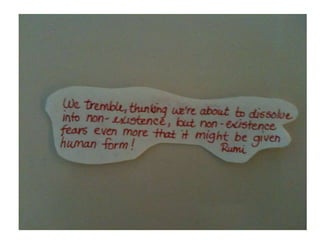 We tremble, thinking we're about to dissolve
into non-existence, but non-existence
fears even more that it might be given
human form!
Rumi